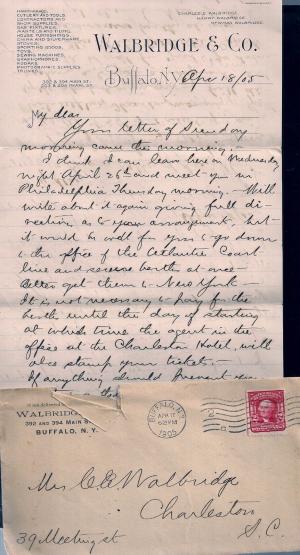 HARDWARE.
CUTLERY AND TOOLS.
CONTRACTORS AND
SHOP SUPPLIES.
GAS FIXTURES.
MANTELS AND TILING.
HOUSE FURNISHINGS.
CHINA AND SILVERWARE
STOVES.
SPORTING GOODS.
TOYS.
SEWING MACHINES.
GRAPHOPHONES.
KODAKS
PHOTOGRAPHIC SUPPLIES
TRUNKS.
392 & 394 MAIN ST.
CHARLES E. WALBRIDGE
HARRY WALBRIDGE
WALBRIDGE & CO.
Buffalo, N.Y. Apr 18/05
My dear
Your letter of Sunday
morning came this morning.
I think I can leave here on Wednesday
night April 26th and meet you in
Philadelphia Thursday morning. Will
write about it again giving full di-
rections as to your arrangements, but
it would be well for you to go down
to the office of the Atlantic Coast
line and secure berth at once
better get them to New York
It is not necessary to pay for the
berth until the day of starting
at which time the agent in the
office at the Charleston Hotel, will
also stamp your tickets.
If anything should prevent
WALBRIDGE
392 AND 394 MAIN S
BUFFALO, N. Y.
BUFFALO, N.Y.
APR
1905
Mrs C E Walbridge
Charleston
S.C.
39 Meeting st